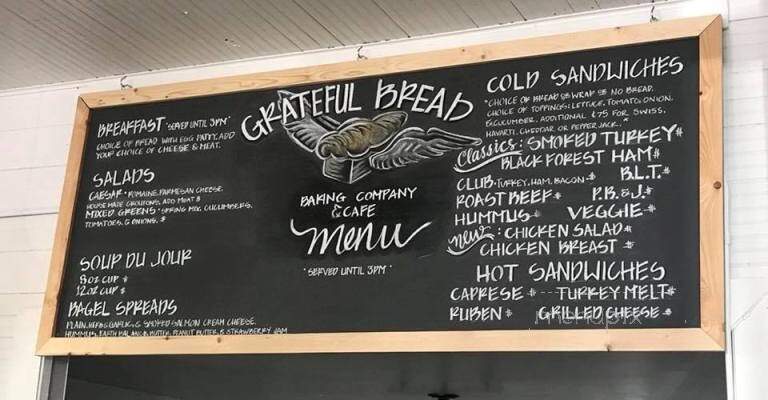 BREAKFAST "SERVED UNTIL 3PM"
CHOICE OF BREAD WITH EGG PATTY. ADD
YOUR CHOICE OF CHEESE & MEAT.
SALADS
CAESAR - ROMAINE, PARMESAN CHEESE.
HOUSE MADE CROUTONS, ADD MEAT $
MIXED GREENS - SPRING MIX, CUCUMBERS,
TOMATOES, & ONIONS. $
SOUP DU JOUR
8 OZ CUP $
12 OZ CUP $
BAGEL SPREADS
PLAIN, HERB & GARLIC, & SMOKED SALMON CREAM CHEESE.
HUMMUS, EARTH BALANCE, BUTTER, PEANUT BUTTER, & STRAWBERRY JAM
GRATEFUL BREAD
BAKING COMPANY
& CAFE
menu
"SERVED UNTIL 3PM"
COLD SANDWICHES
"CHOICE OF BREAD OR WRAP OR NO BREAD.
CHOICE OF TOPPINGS: LETTUCE, TOMATO, ONION,
& CUCUMBER. ADDITIONAL ¢75 FOR SWISS,
HAVARTI, CHEDDAR, OR PEPPER JACK..."
Classics: SMOKED TURKEY $
BLACK FOREST HAM $
CLUB - TURKEY, HAM, BACON $ B.L.T. $
ROAST BEEF $ P.B. & J. $
HUMMUS $ VEGGIE $
new: CHICKEN SALAD $
CHICKEN BREAST $
HOT SANDWICHES
CAPRESE $ --- TURKEY MELT $
RUBEN $ GRILLED CHEESE $
menupix